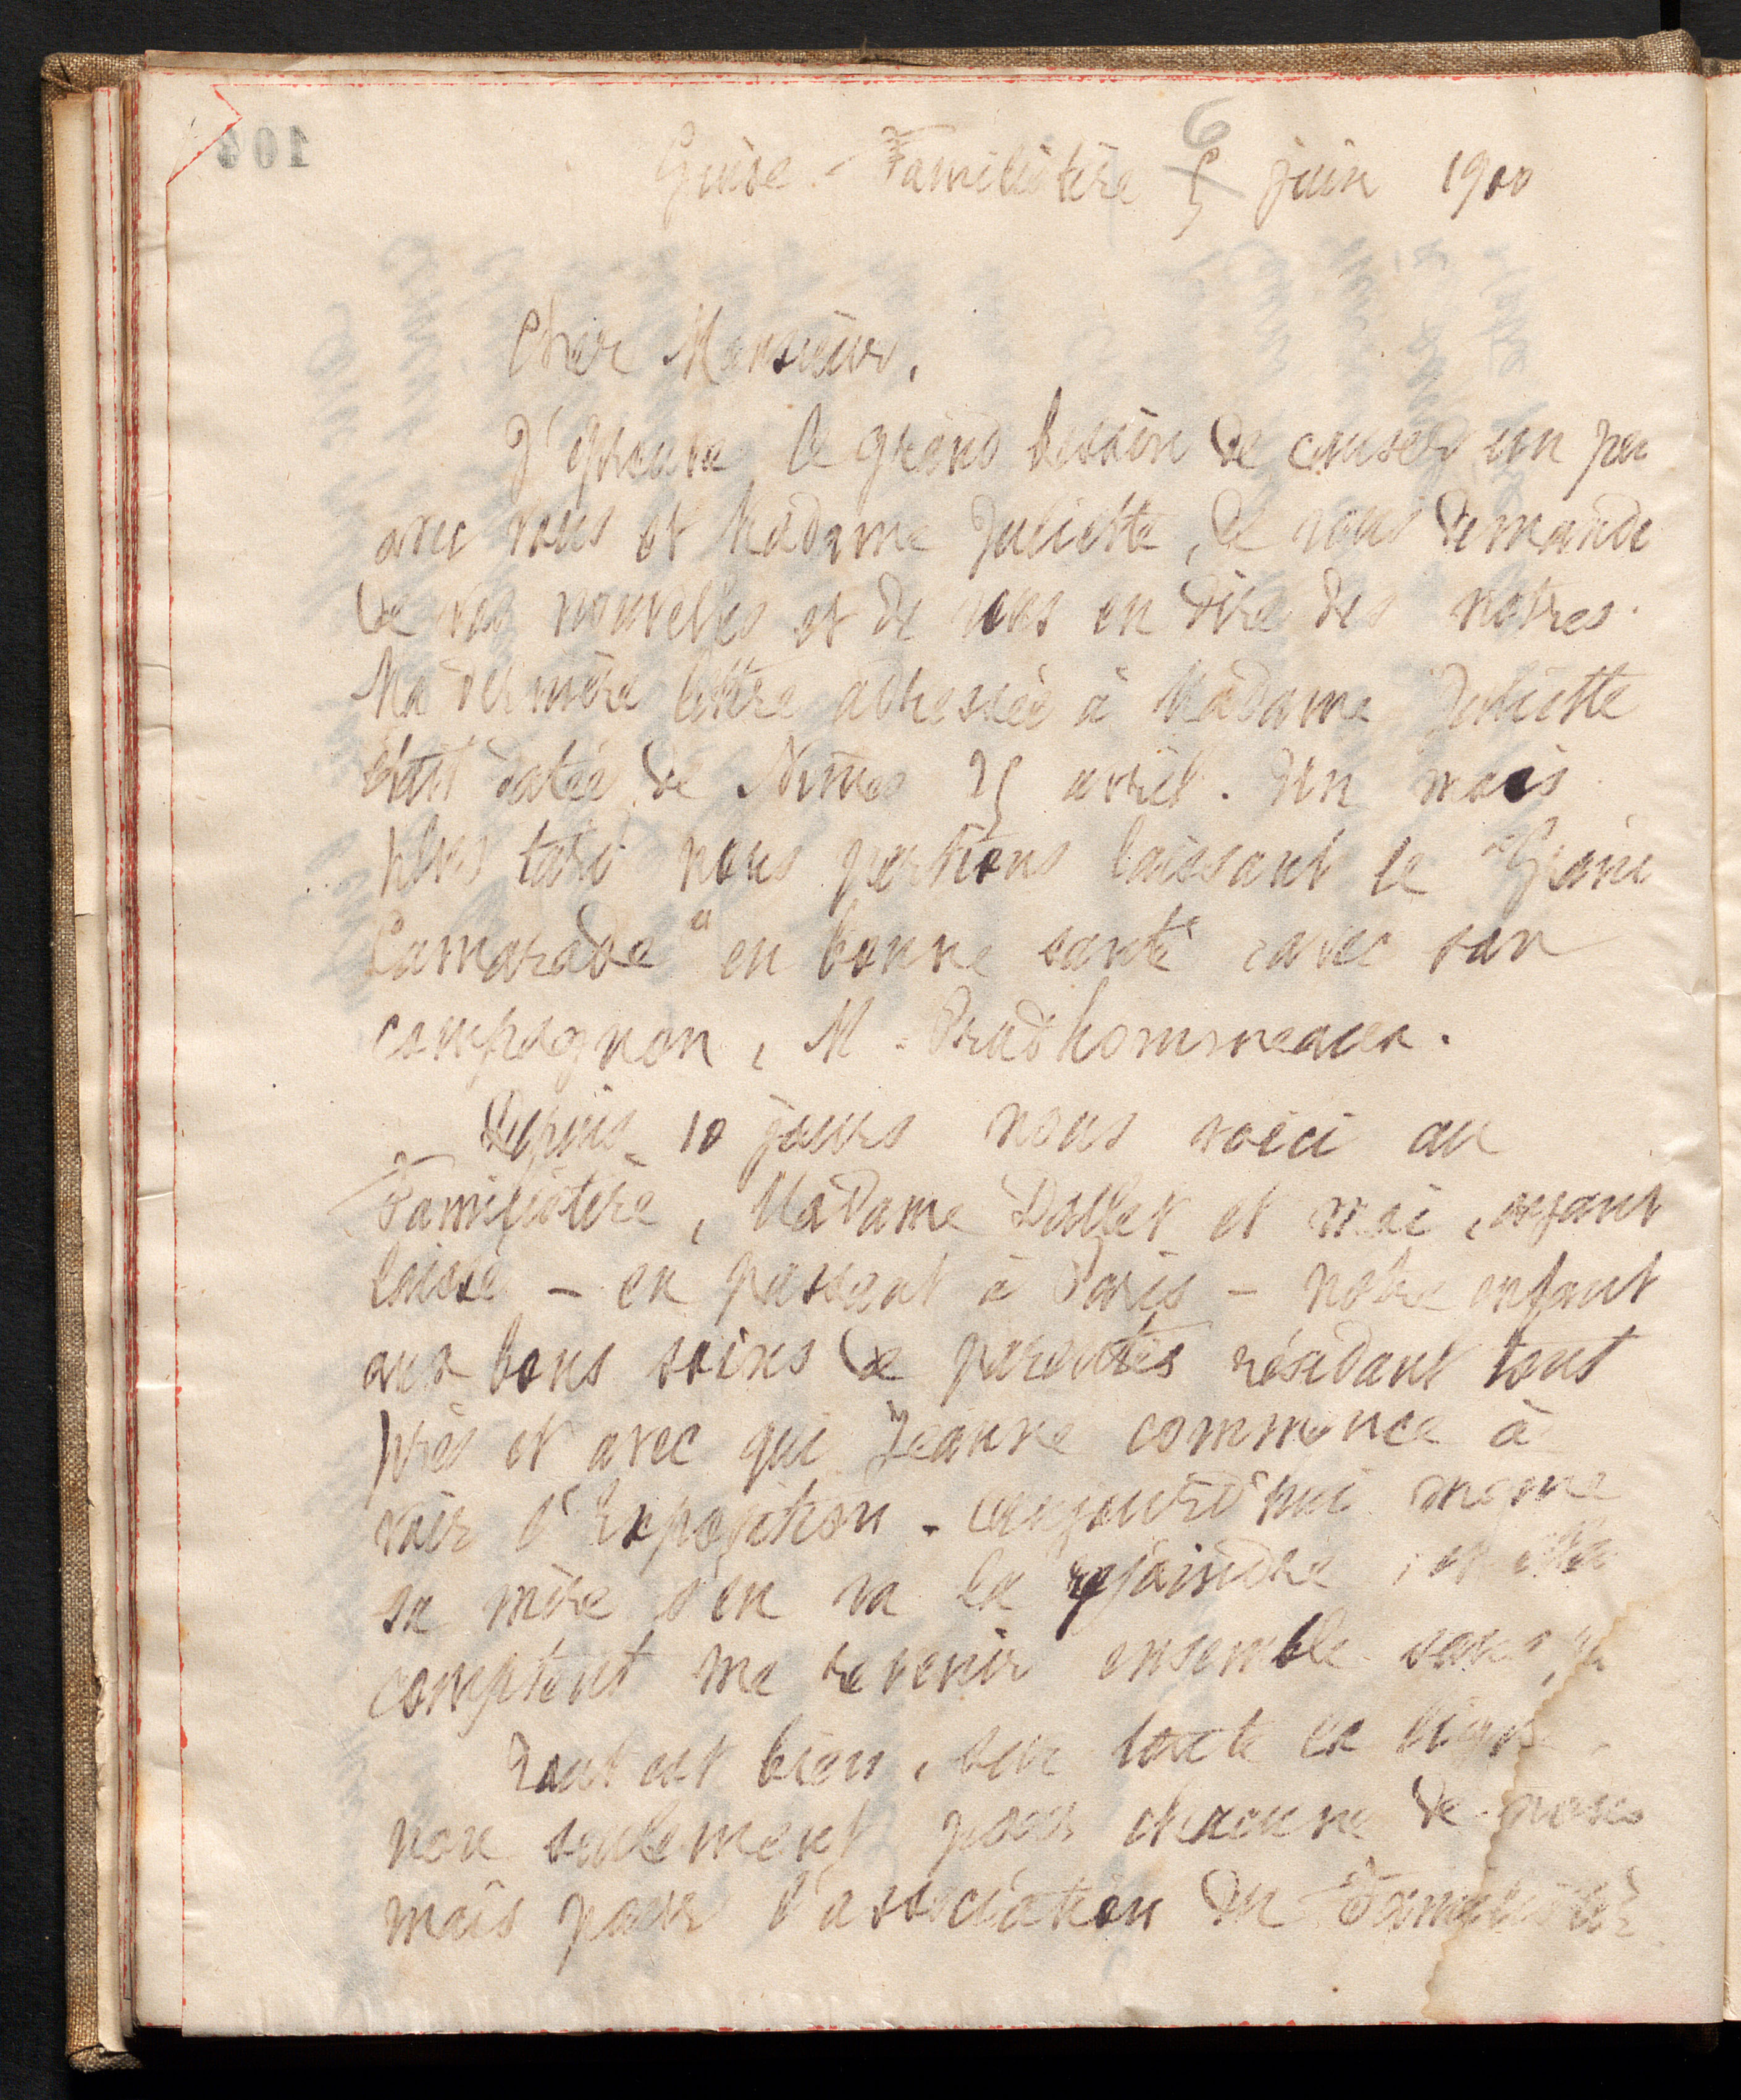 104
Guise - Familistère 5 juin 1900
6
Cher Monsieur,
J'éprouve le grand besoin de causer un peu
avec vous et Madame Juliette, de vous demander
de vos nouvelles et de vous en dire des nôtres.
Ma dernière lettre adressée à Madame Juliette
était datée de Nîmes 25 avril. Un mois
plus tard nous partions laissant le "Grand
Camarade" en bonne santé avec son
compagnon, M. Prudhommeaux.
Depuis 10 jours nous voici au
Familistère, Madame Dallet et moi, ayant
laissé - en passant à Paris - notre enfant
aux bons soins de parentes résidant tout
près et avec qui Jeanne commence à
voir l'Exposition. Aujourd'hui même
sa mère s'en va la rejoindre, et elles
comptent me revenir ensemble sous
Tout est bien, sur toute la ligne,
non seulement pour chacune de nous
mais pour l'association du Familistère